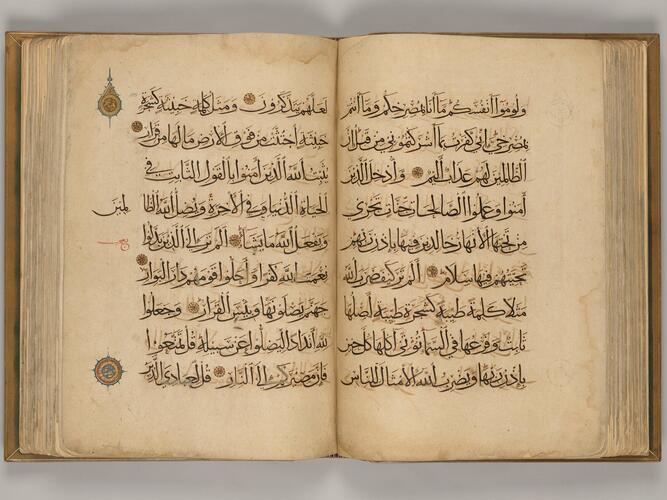 ولوموا أنفسكم ما أنا بمصرخكم وما أنتم
بمصرخي إني كفرت بما أشركتموني من قبل إن
الظالمين لهم عذاب أليم وأدخل الذين
آمنوا وعملوا الصالحات جنات تجري
من تحتها الأنهار خالدين فيها بإذن ربهم
تحيتهم فيها سلام ألم تر كيف ضرب الله
مثلا كلمة طيبة كشجرة طيبة أصلها
ثابت وفرعها في السماء تؤتي أكلها كل حين
بإذن ربها ويضرب الله الأمثال للناس
لعلهم يتذكرون ومثل كلمة خبيثة كشجرة
خبيثة اجتثت من فوق الأرض ما لها من قرار
يثبت الله الذين آمنوا بالقول الثابت في
الحياة الدنيا وفي الآخرة ويضل الله الظا
لمين
ويفعل الله ما يشاء ألم تر إلى الذين بدلوا
نعمت الله كفرا وأحلوا قومهم دار البوار
جهنم يصلونها وبئس القرار وجعلوا
لله أندادا ليضلوا عن سبيله قل تمتعوا
فإن مصيركم إلى النار قل لعبادي الذين